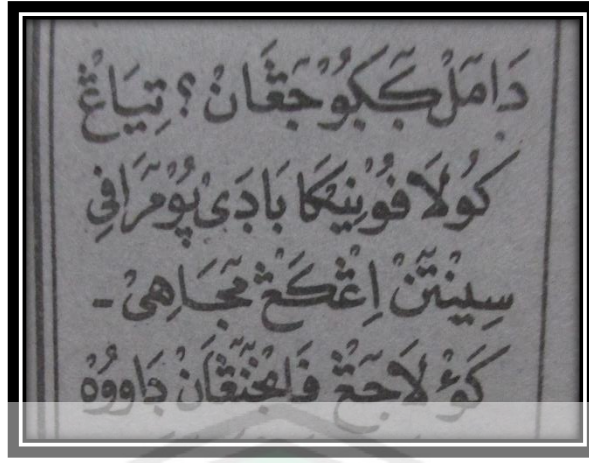 دَامٓلْ كٓكَوُجٓڠَانْ ؟ تِيَاڠْ
كَوُلَا فُوْنِيْكَا بَادَيْ پُوْمٓرَافِي
سِيْنْتٓنْ اِڠْكَڠْ مٓجَاهِيْ -
كَوُلَا جٓڠْ فَانْجٓنٓڠَانْ دَاووُهْ